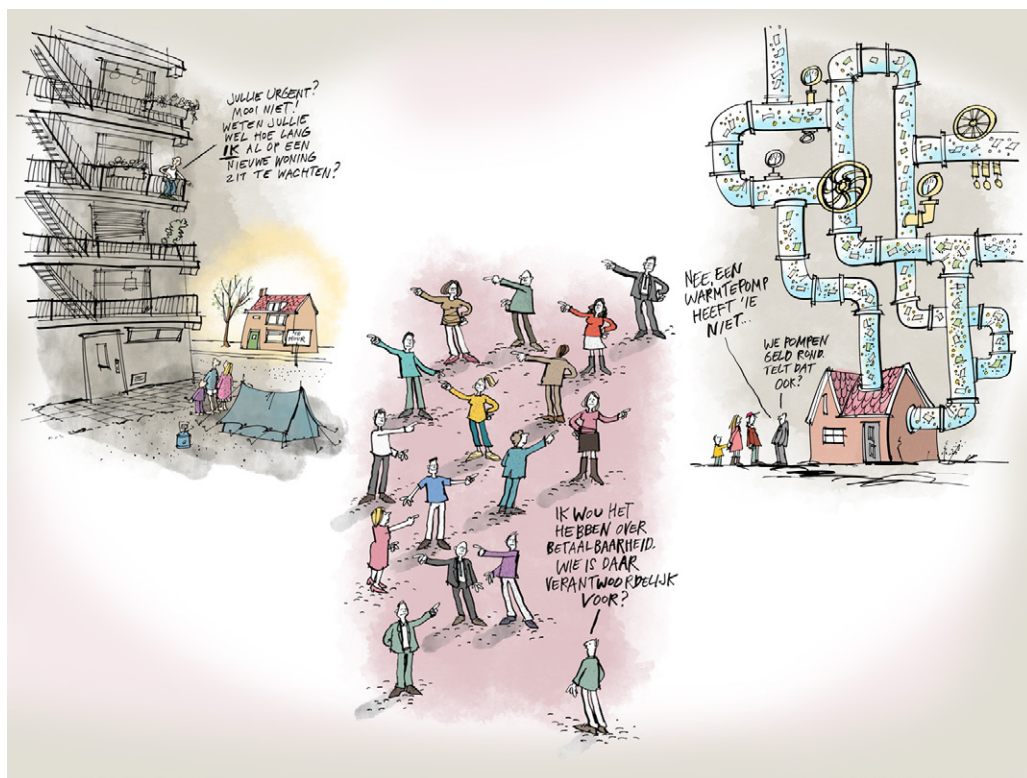 JULLIE URGENT?
MOOI NIET!
WETEN JULLIE
WEL HOE LANG
IK AL OP EEN
NIEUWE WONING
ZIT TE WACHTEN?
TE
HUUR
IK WOU HET
HEBBEN OVER
BETAALBAARHEID.
WIE IS DAAR
VERANTWOORDELIJK
VOOR?
NEE, EEN
WARMTEPOMP
HEEFT 'IE
NIET...
WE POMPEN
GELD ROND.
TELT DAT
OOK?